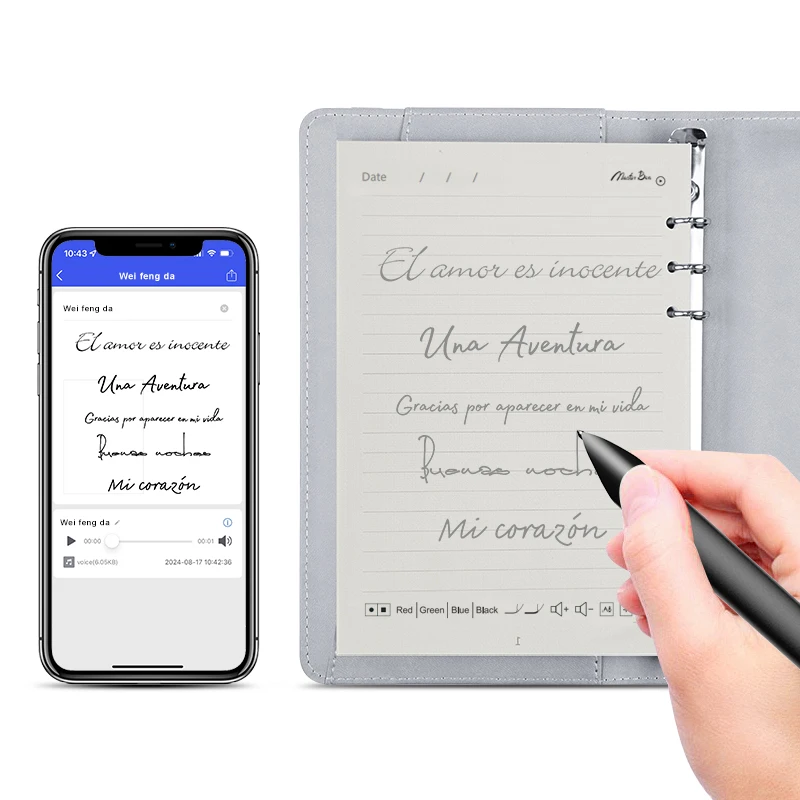 10:43
Wei feng da
Wei feng da
El amor es inocente
Una Aventura
Gracias por aparecer en mi vida
Buenas noches
Mi corazón
Wei feng da
00:00
00:01
voice(6.05KB)
2024-08-17 10:42:36
Date / / /
El amor es inocente
Una Aventura
Gracias por aparecer en mi vida
Buenas noch
Mi corazón
Red | Green | Blue | Black + -
1